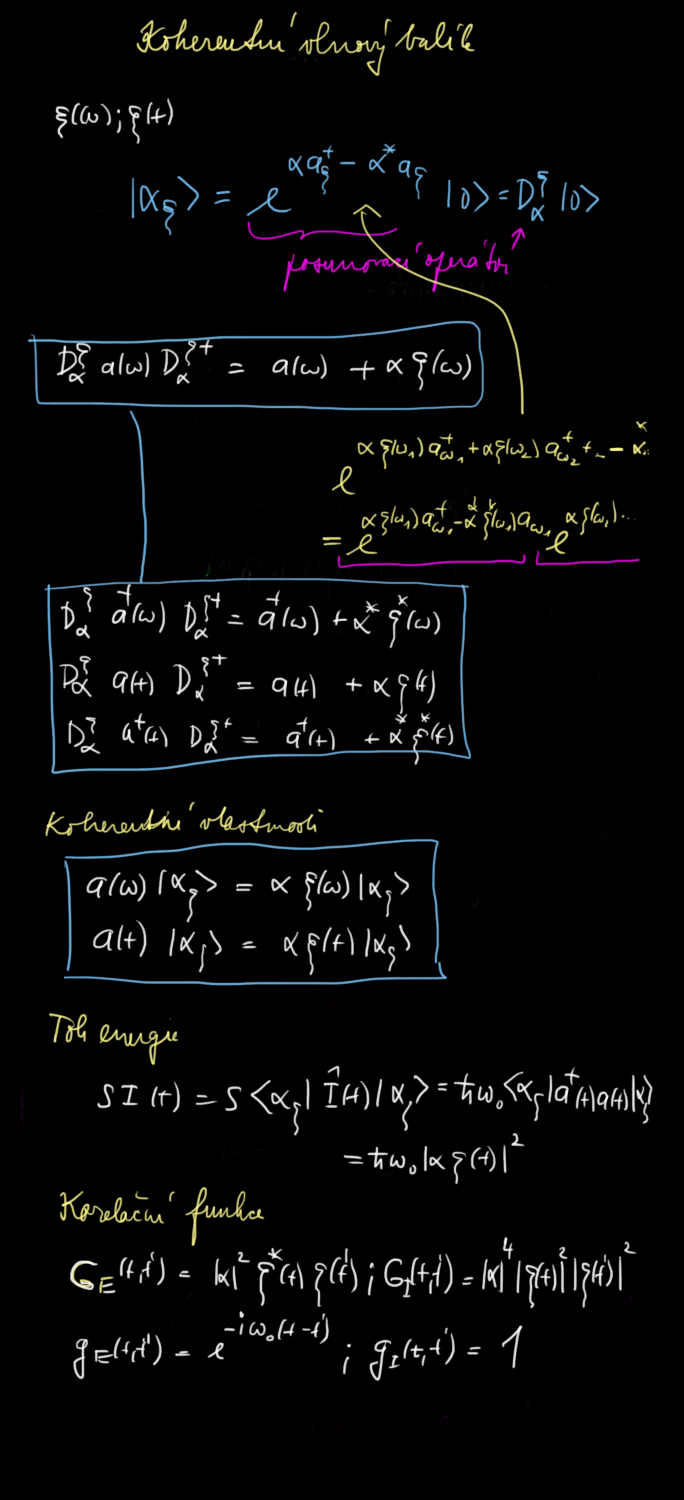 Koherentní vlnový balík
ξ(ω); ξ(t)
|α_ξ⟩ = e^{α a_ξ^† − α^* a_ξ} |0⟩ = D_α^ξ |0⟩
posunovací operátor
D_α^ξ a(ω) D_α^{ξ†} = a(ω) + α ξ(ω)
e^{α ξ(ω_1) a_{ω_1}^† + α ξ(ω_2) a_{ω_2}^† + … − α^*…}
= e^{α ξ(ω_1) a_{ω_1}^† − α^* ξ^*(ω_1) a_{ω_1}} e^{α ξ(ω_2)…}
D_α^ξ a^†(ω) D_α^{ξ†} = a^†(ω) + α^* ξ^*(ω)
D_α^ξ a(t) D_α^{ξ†} = a(t) + α ξ(t)
D_α^ξ a^†(t) D_α^{ξ†} = a^†(t) + α^* ξ^*(t)
Koherentní vlastnosti
a(ω) |α_ξ⟩ = α ξ(ω) |α_ξ⟩
a(t) |α_ξ⟩ = α ξ(t) |α_ξ⟩
Tok energie
S I(t) = S ⟨α_ξ| Î(t) |α_ξ⟩ = ħω_0 ⟨α_ξ| a^†(t) a(t) |α_ξ⟩
= ħω_0 |α ξ(t)|^2
Korelační funkce
G_E(t,t') = |α|^2 ξ^*(t) ξ(t') ; G_I(t,t') = |α|^4 |ξ(t)|^2 |ξ(t')|^2
g_E(t,t') = e^{−iω_0(t−t')} ; g_I(t,t') = 1